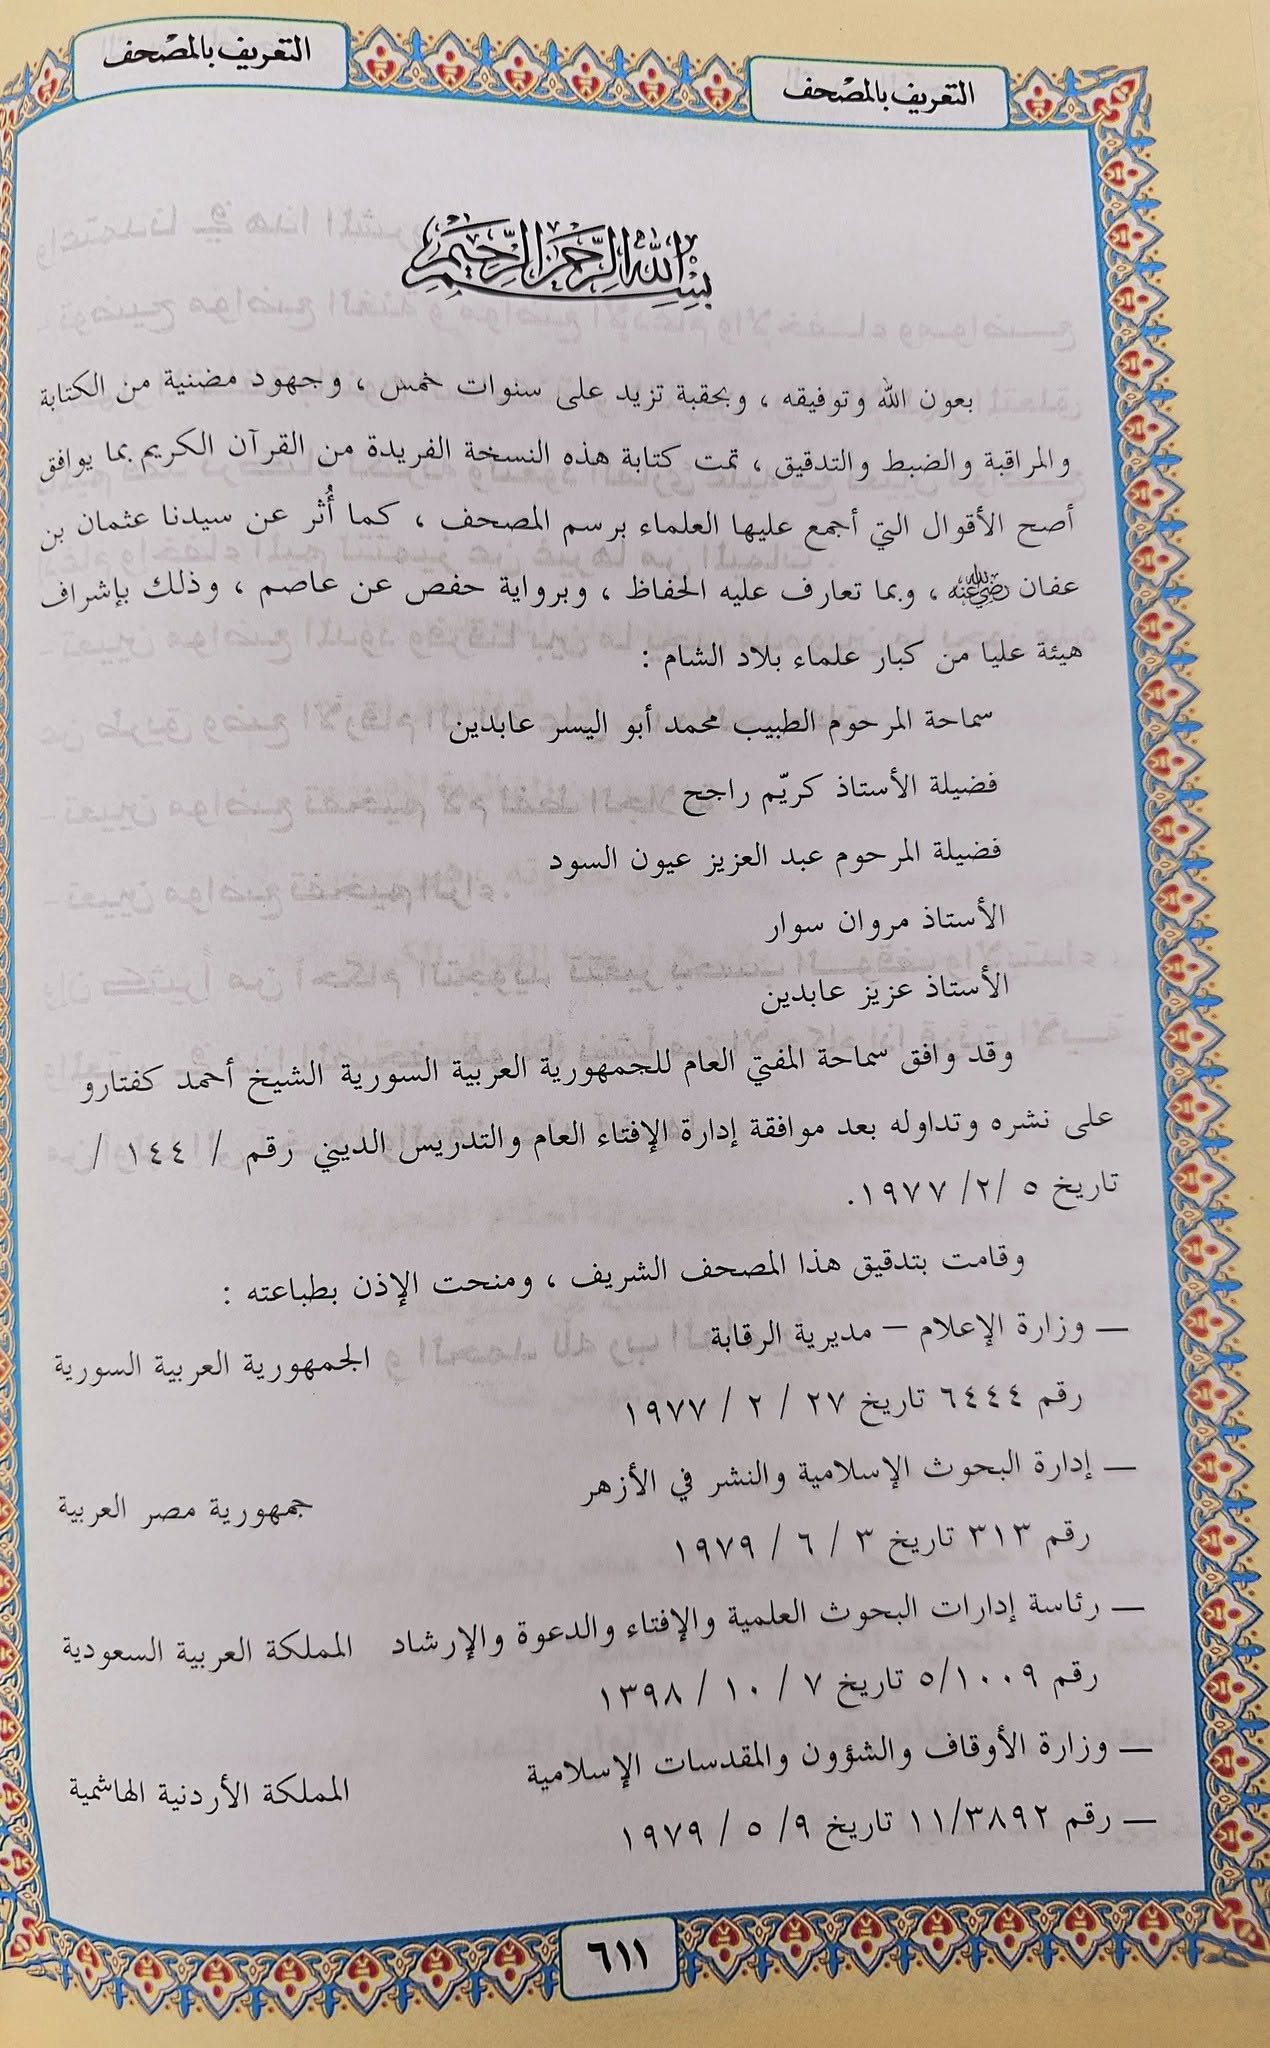 التعريف بالمصحف
التعريف بالمصحف
بسم الله الرحمن الرحيم
بعون الله وتوفيقه ، وبحقبة تزيد على سنوات خمس ، وجهود مضنية من الكتابة
والمراقبة والضبط والتدقيق ، تمت كتابة هذه النسخة الفريدة من القرآن الكريم بما يوافق
أصح الأقوال التي أجمع عليها العلماء برسم المصحف ، كما أُثر عن سيدنا عثمان بن
عفان رضي الله عنه ، وبما تعارف عليه الحفاظ ، وبرواية حفص عن عاصم ، وذلك بإشراف
هيئة عليا من كبار علماء بلاد الشام :
سماحة المرحوم الطبيب محمد أبو اليسر عابدين
فضيلة الأستاذ كريّم راجح
فضيلة المرحوم عبد العزيز عيون السود
الأستاذ مروان سوار
الأستاذ عزيز عابدين
وقد وافق سماحة المفتي العام للجمهورية العربية السورية الشيخ أحمد كفتارو
على نشره وتداوله بعد موافقة إدارة الإفتاء العام والتدريس الديني رقم / ١٤٤ /
تاريخ ٥ /٢/ ١٩٧٧.
وقامت بتدقيق هذا المصحف الشريف ، ومنحت الإذن بطباعته :
— وزارة الإعلام – مديرية الرقابة الجمهورية العربية السورية
رقم ٦٤٤٤ تاريخ ٢٧ / ٢ / ١٩٧٧
— إدارة البحوث الإسلامية والنشر في الأزهر جمهورية مصر العربية
رقم ٣١٣ تاريخ ٣ / ٦ / ١٩٧٩
— رئاسة إدارات البحوث العلمية والإفتاء والدعوة والإرشاد المملكة العربية السعودية
رقم ٥/١٠٠٩ تاريخ ٧ / ١٠ / ١٣٩٨
— وزارة الأوقاف والشؤون والمقدسات الإسلامية المملكة الأردنية الهاشمية
— رقم ١١/٣٨٩٢ تاريخ ٩/ ٥ / ١٩٧٩
٦١١